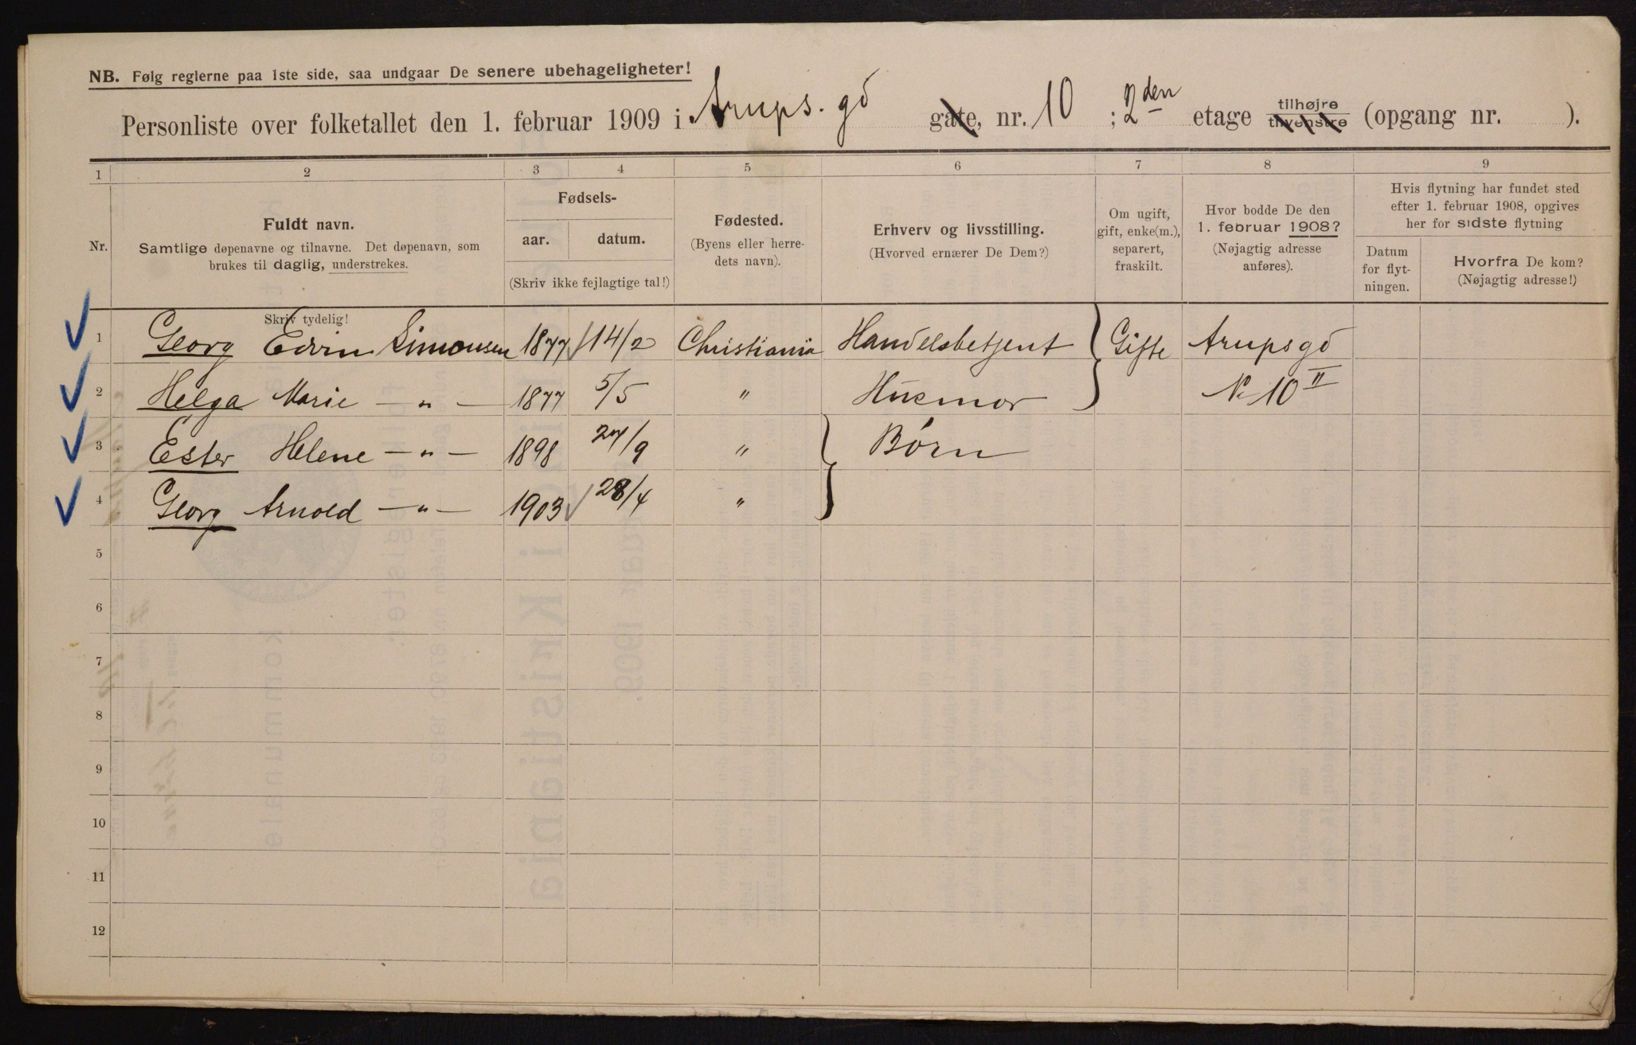 NB. Følg reglerne paa 1ste side, saa undgaar De senere ubehageligheter!
Personliste over folketallet den 1. februar 1909 i Arups. gd gate, nr. 10 ; 2den etage tilhøjre tilvenstre (opgang nr. ).
1 2 3 4 5 6 7 8 9
Nr.
Fuldt navn.
Samtlige døpenavne og tilnavne. Det døpenavn, som
brukes til daglig, understrekes.
Fødsels-
aar. datum.
(Skriv ikke fejlagtige tal!)
Fødested.
(Byens eller herre-
dets navn).
Erhverv og livsstilling.
(Hvorved ernærer De Dem?)
Om ugift,
gift, enke(m.),
separert,
fraskilt.
Hvor bodde De den
1. februar 1908?
(Nøjagtig adresse
anføres).
Hvis flytning har fundet sted
efter 1. februar 1908, opgives
her for sidste flytning
Datum
for flyt-
ningen.
Hvorfra De kom?
(Nøjagtig adresse!)
Skriv tydelig!
1 Georg Edvin Simonsen 1877 14/2 Christiania Handelsbetjent Gifte Arupsgd
2 Helga Marie — „ — 1877 5/5 „ Husmor № 10 II
3 Ester Helene — „ — 1898 27/9 „ Børn
4 Georg Arnold — „ — 1903 28/4 „
5
6
7
8
9
10
11
12